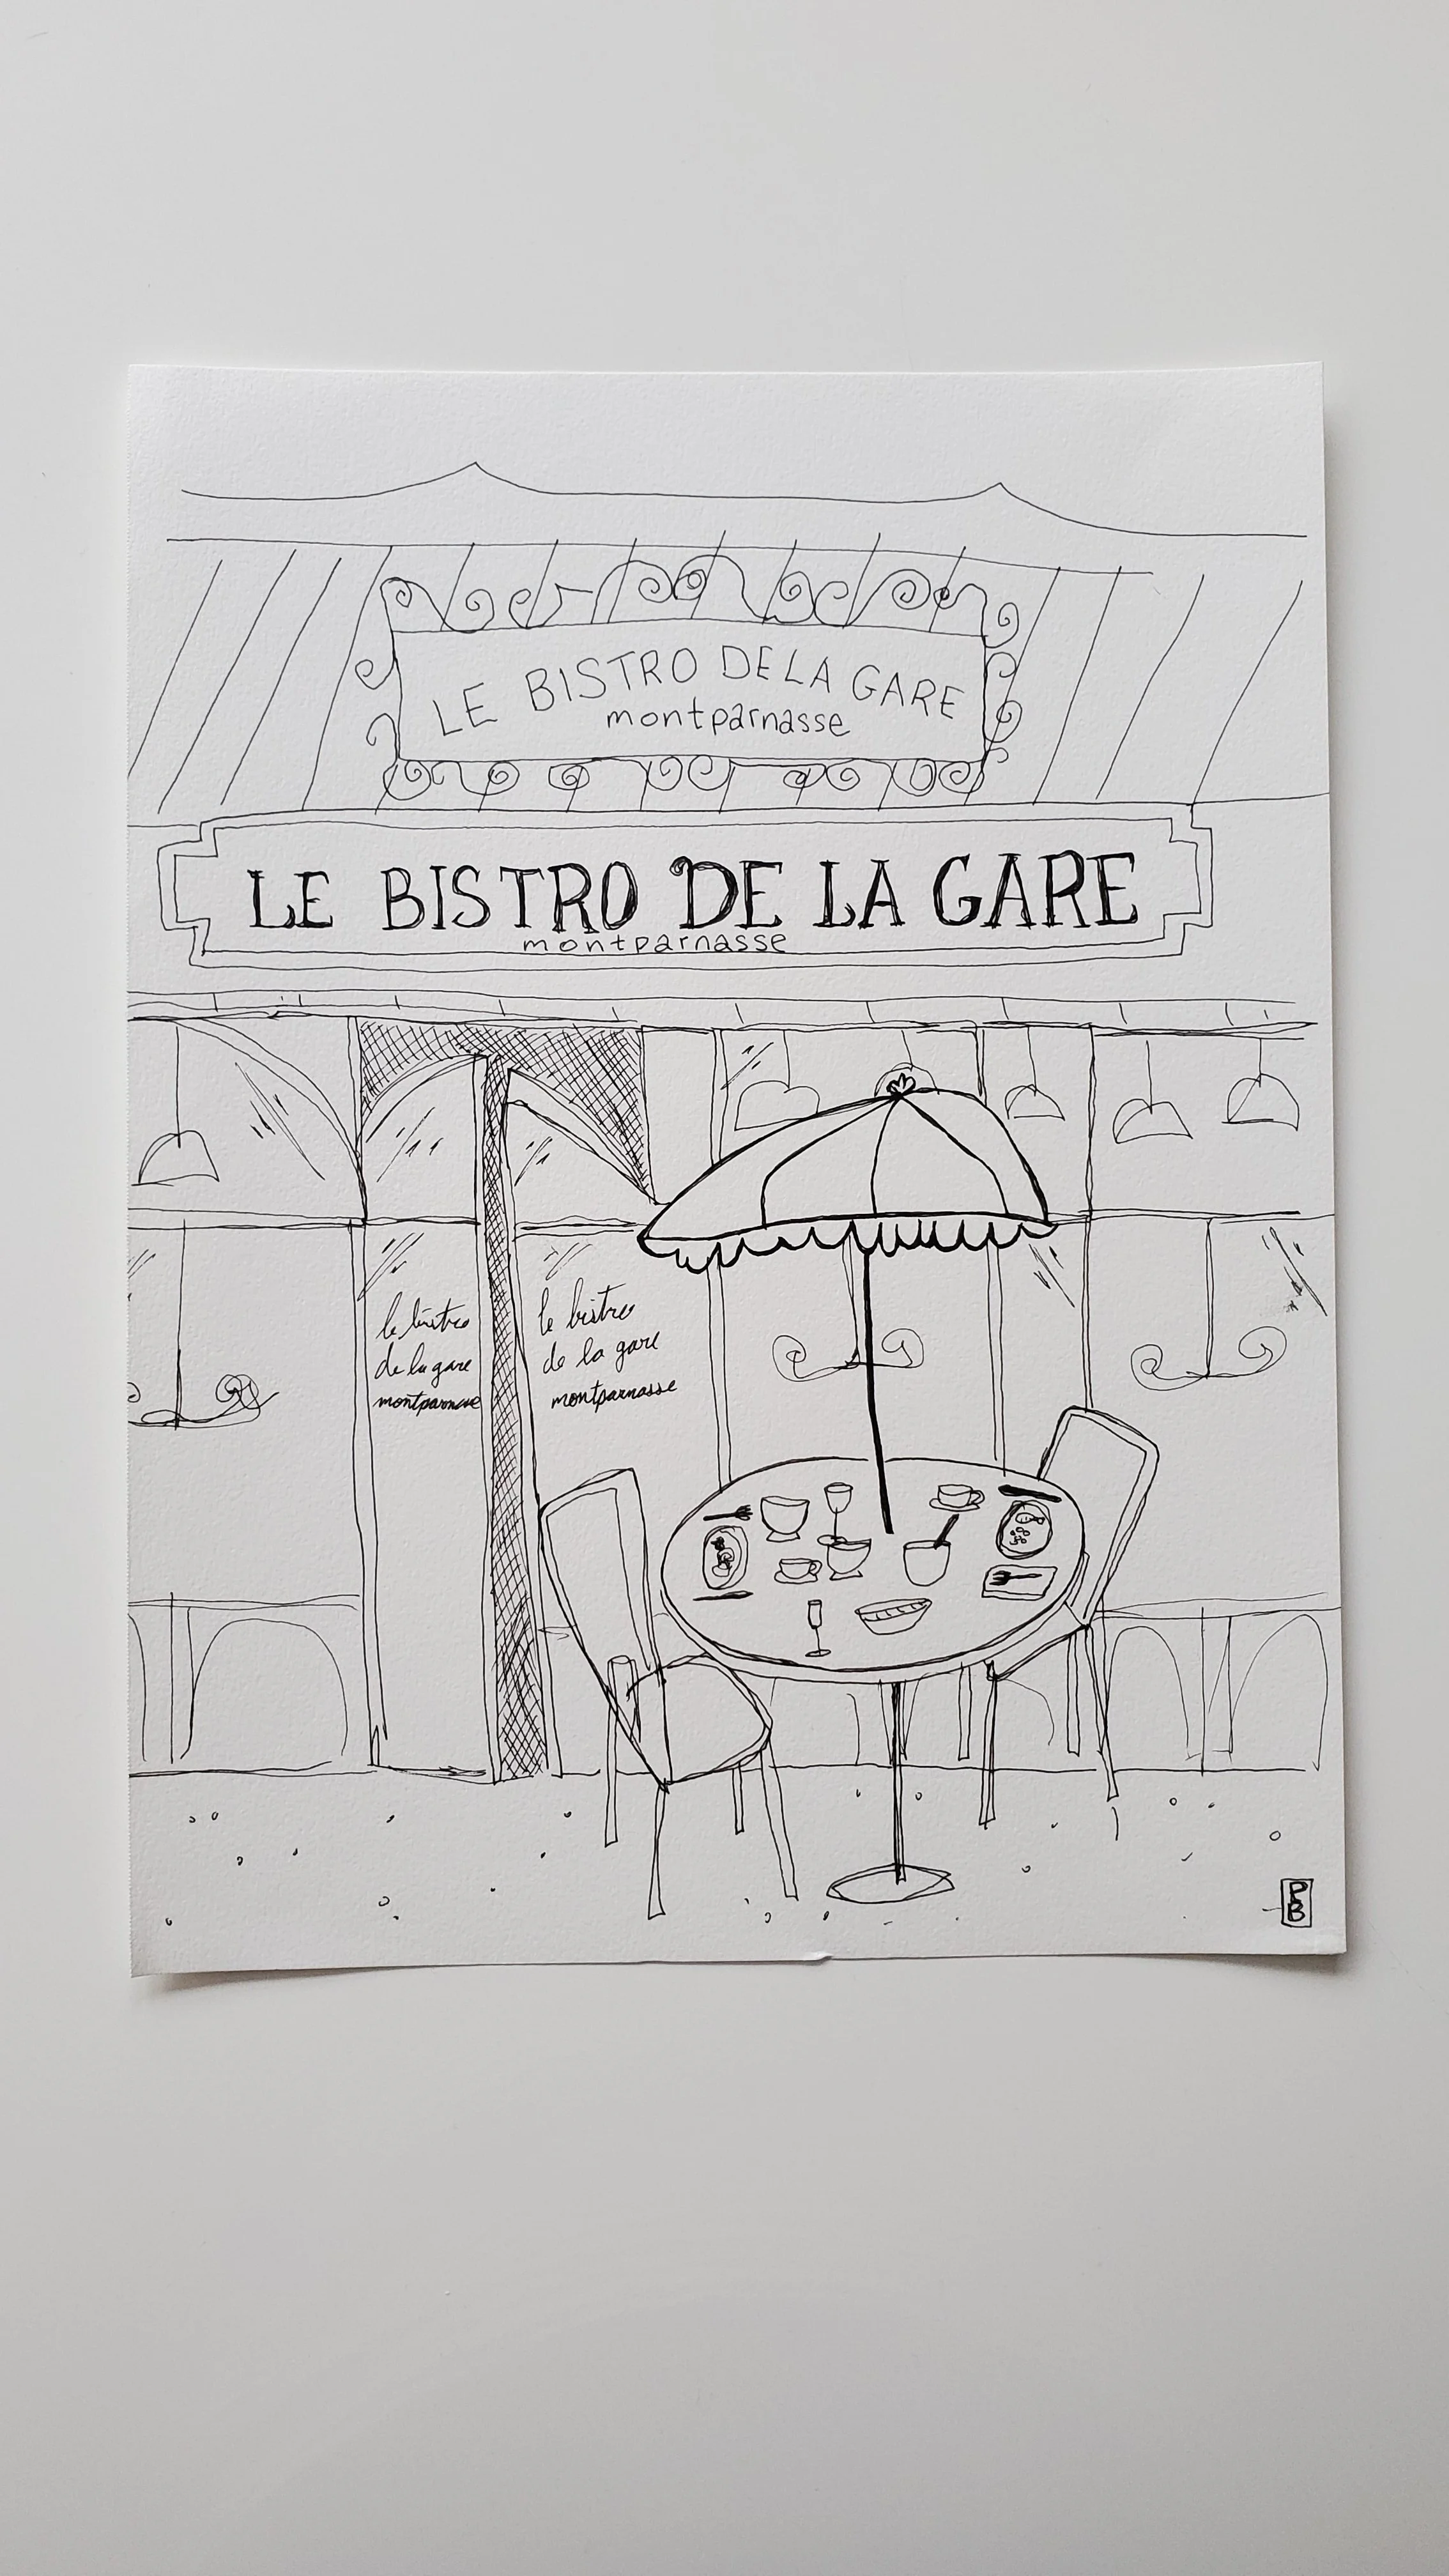 LE BISTRO DE LA GARE
montparnasse
LE BISTRO DE LA GARE
montparnasse
le bistro
de la gare
montparnasse
le bistro
de la gare
montparnasse
PB